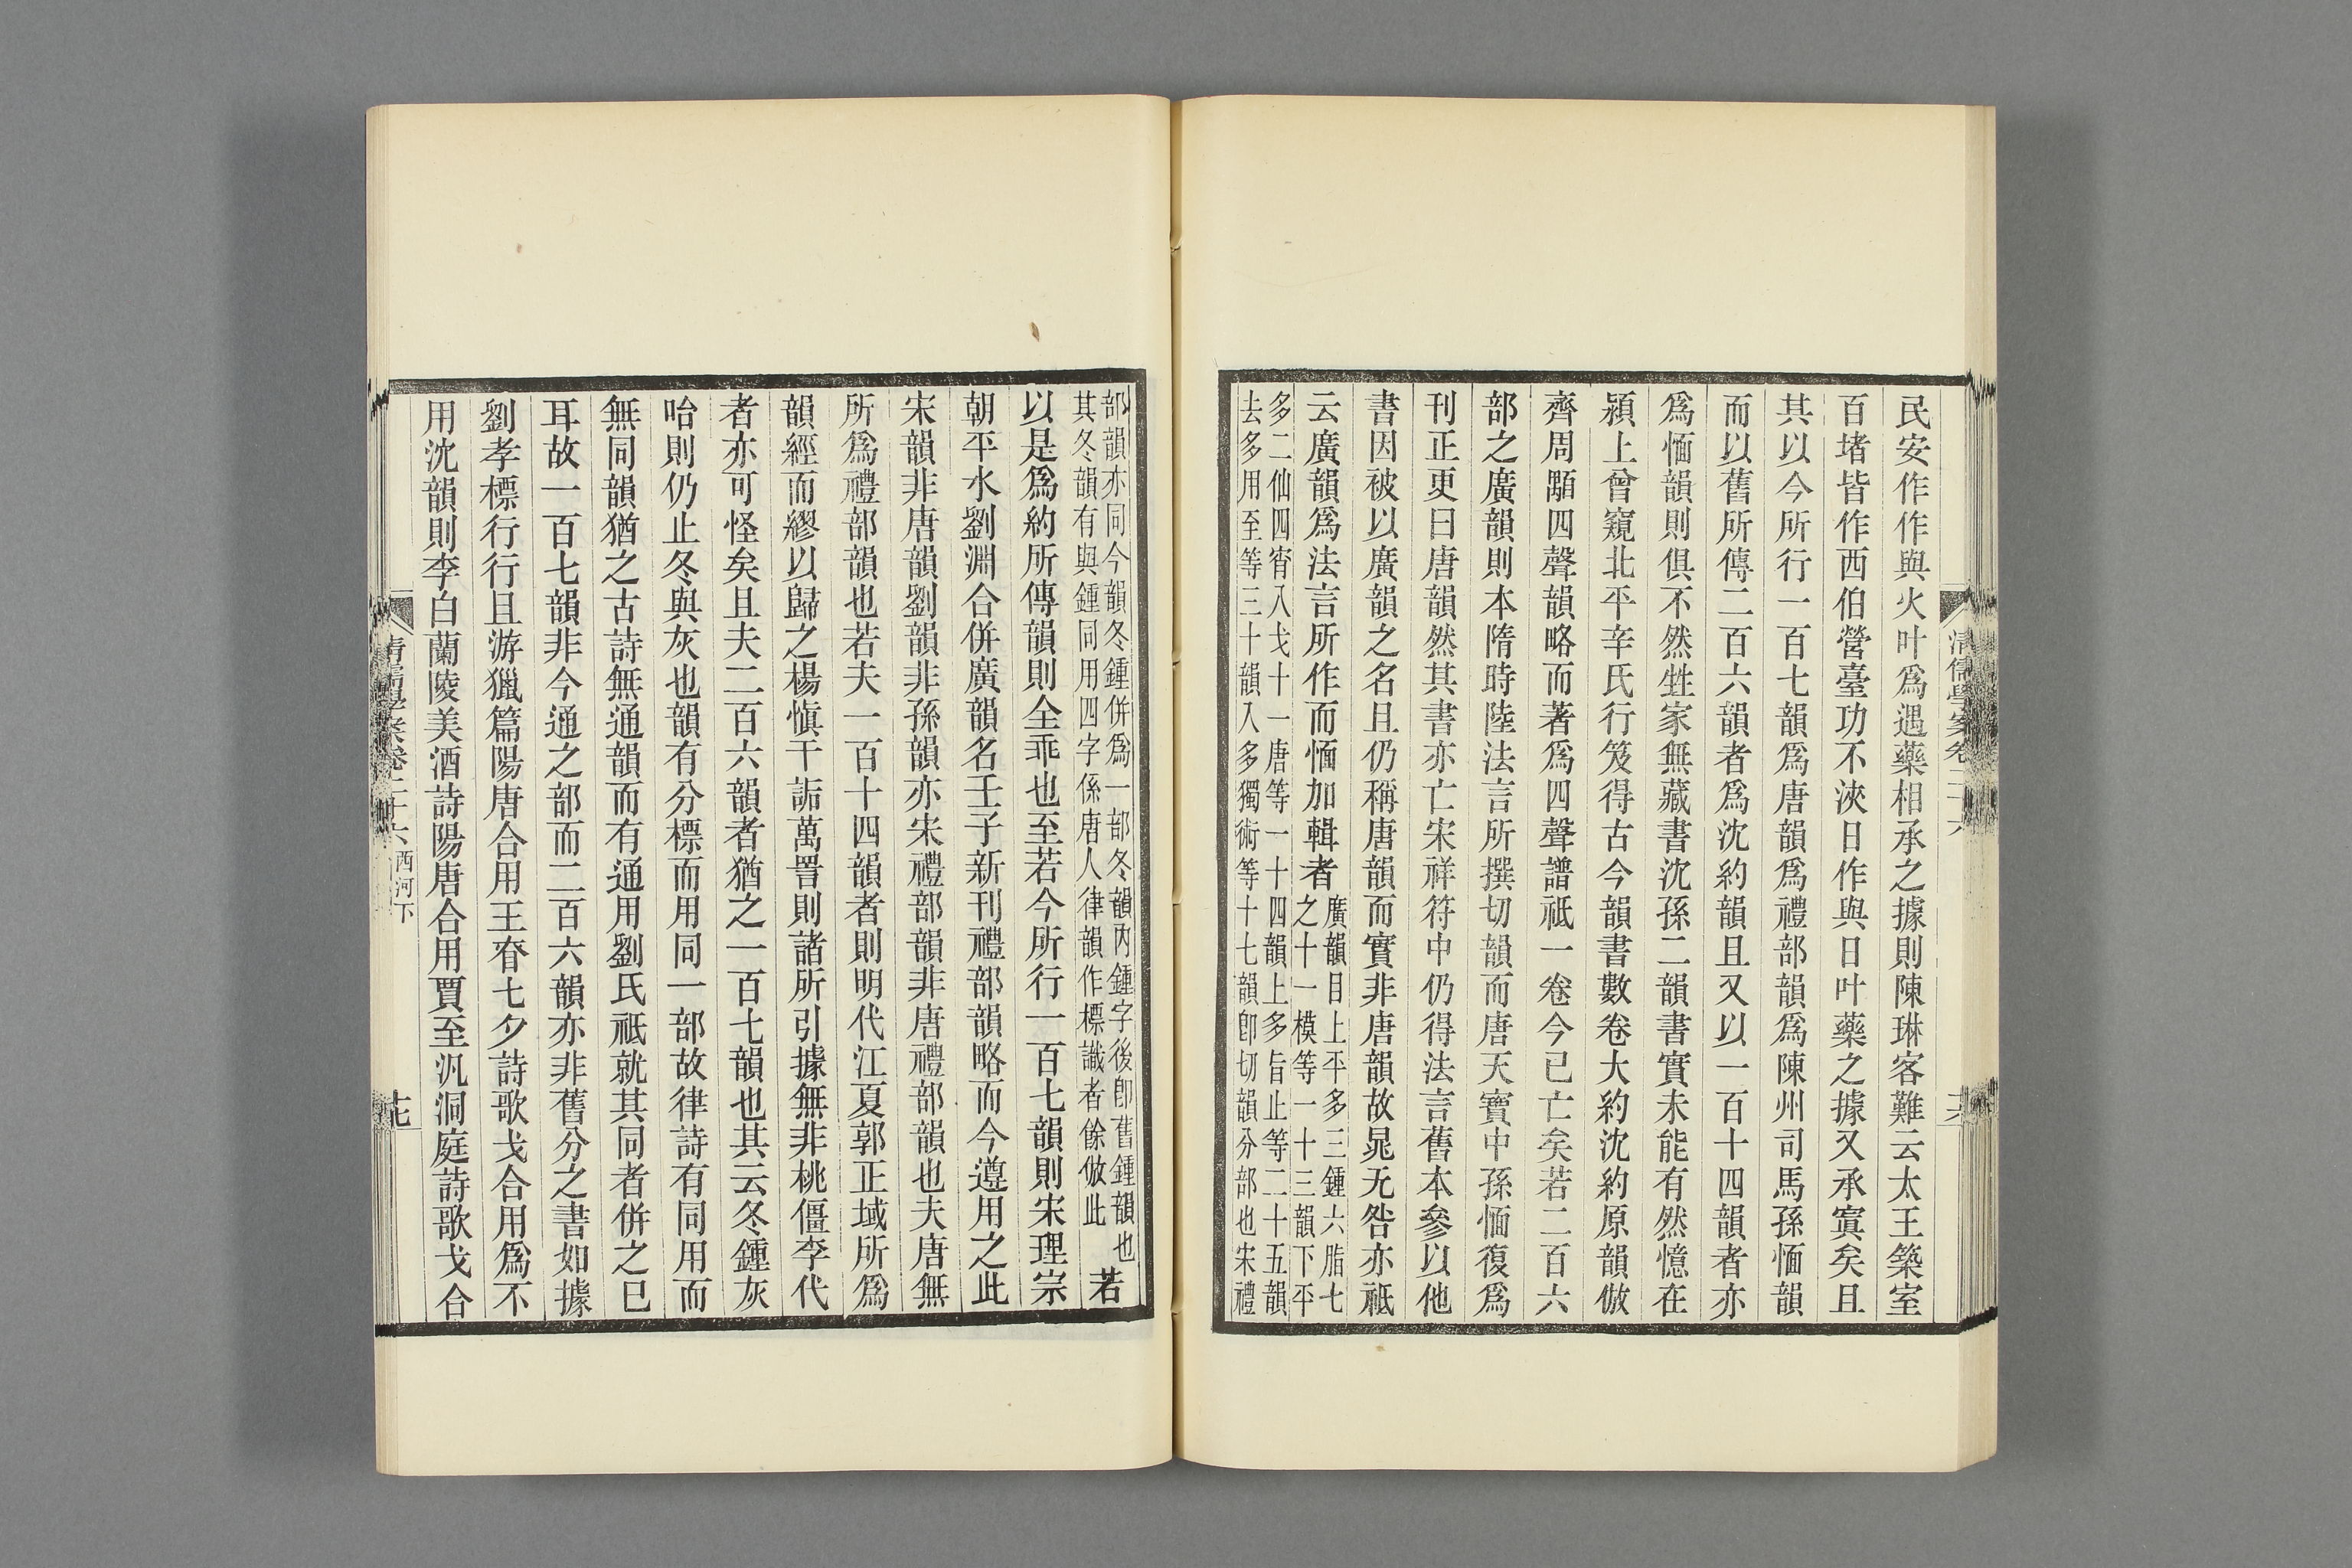 清儒學案卷二十六
民安作作與火叶爲遇藥相承之據則陳琳客難云太王築室
百堵皆作西伯營臺功不浹日作與日叶藥之據又承寘矣且
其以今所行一百七韻爲唐韻爲禮部韻爲陳州司馬孫愐韻
而以舊所傳二百六韻者爲沈約韻且又以一百十四韻者亦
爲愐韻則俱不然甡家無藏書沈孫二韻書實未能有然憶在
潁上曾窺北平辛氏行笈得古今韻書數卷大約沈約原韻倣
齊周顒四聲韻略而著爲四聲譜祇一卷今已亡矣若二百六
部之廣韻則本隋時陸法言所撰切韻而唐天寶中孫愐復爲
刊正更曰唐韻然其書亦亡宋祥符中仍得法言舊本參以他
書因被以廣韻之名且仍稱唐韻而實非唐韻故晁无咎亦祇
云廣韻爲法言所作而愐加輯者
廣韻目上平多三鍾六脂七
之十一模等一十三韻下平
多二仙四宵八戈十一唐等一十四韻上多旨止等二十五韻
去多用至等三十韻入多獨術等十七韻卽切韻分部也宋禮
部韻亦同今韻冬鍾併爲一部冬韻內鍾字後卽舊鍾韻也
其冬韻有與鍾同用四字係唐人律韻作標識者餘倣此
若
以是爲約所傳韻則全乖也至若今所行一百七韻則宋理宗
朝平水劉淵合併廣韻名壬子新刊禮部韻略而今遵用之此
宋韻非唐韻劉韻非孫韻亦宋禮部韻非唐禮部韻也夫唐無
所爲禮部韻也若夫一百十四韻者則明代江夏郭正域所爲
韻經而繆以歸之楊愼干詬萬詈則諸所引據無非桃僵李代
者亦可怪矣且夫二百六韻者猶之一百七韻也其云冬鍾灰
咍則仍止冬與灰也韻有分標而用同一部故律詩有同用而
無同韻猶之古詩無通韻而有通用劉氏祇就其同者併之已
耳故一百七韻非今通之部而二百六韻亦非舊分之書如據
劉孝標行行且游獵篇陽唐合用王眘七夕詩歌戈合用爲不
用沈韻則李白蘭陵美酒詩陽唐合用賈至汎洞庭詩歌戈合
清儒學案卷二十六
西河下